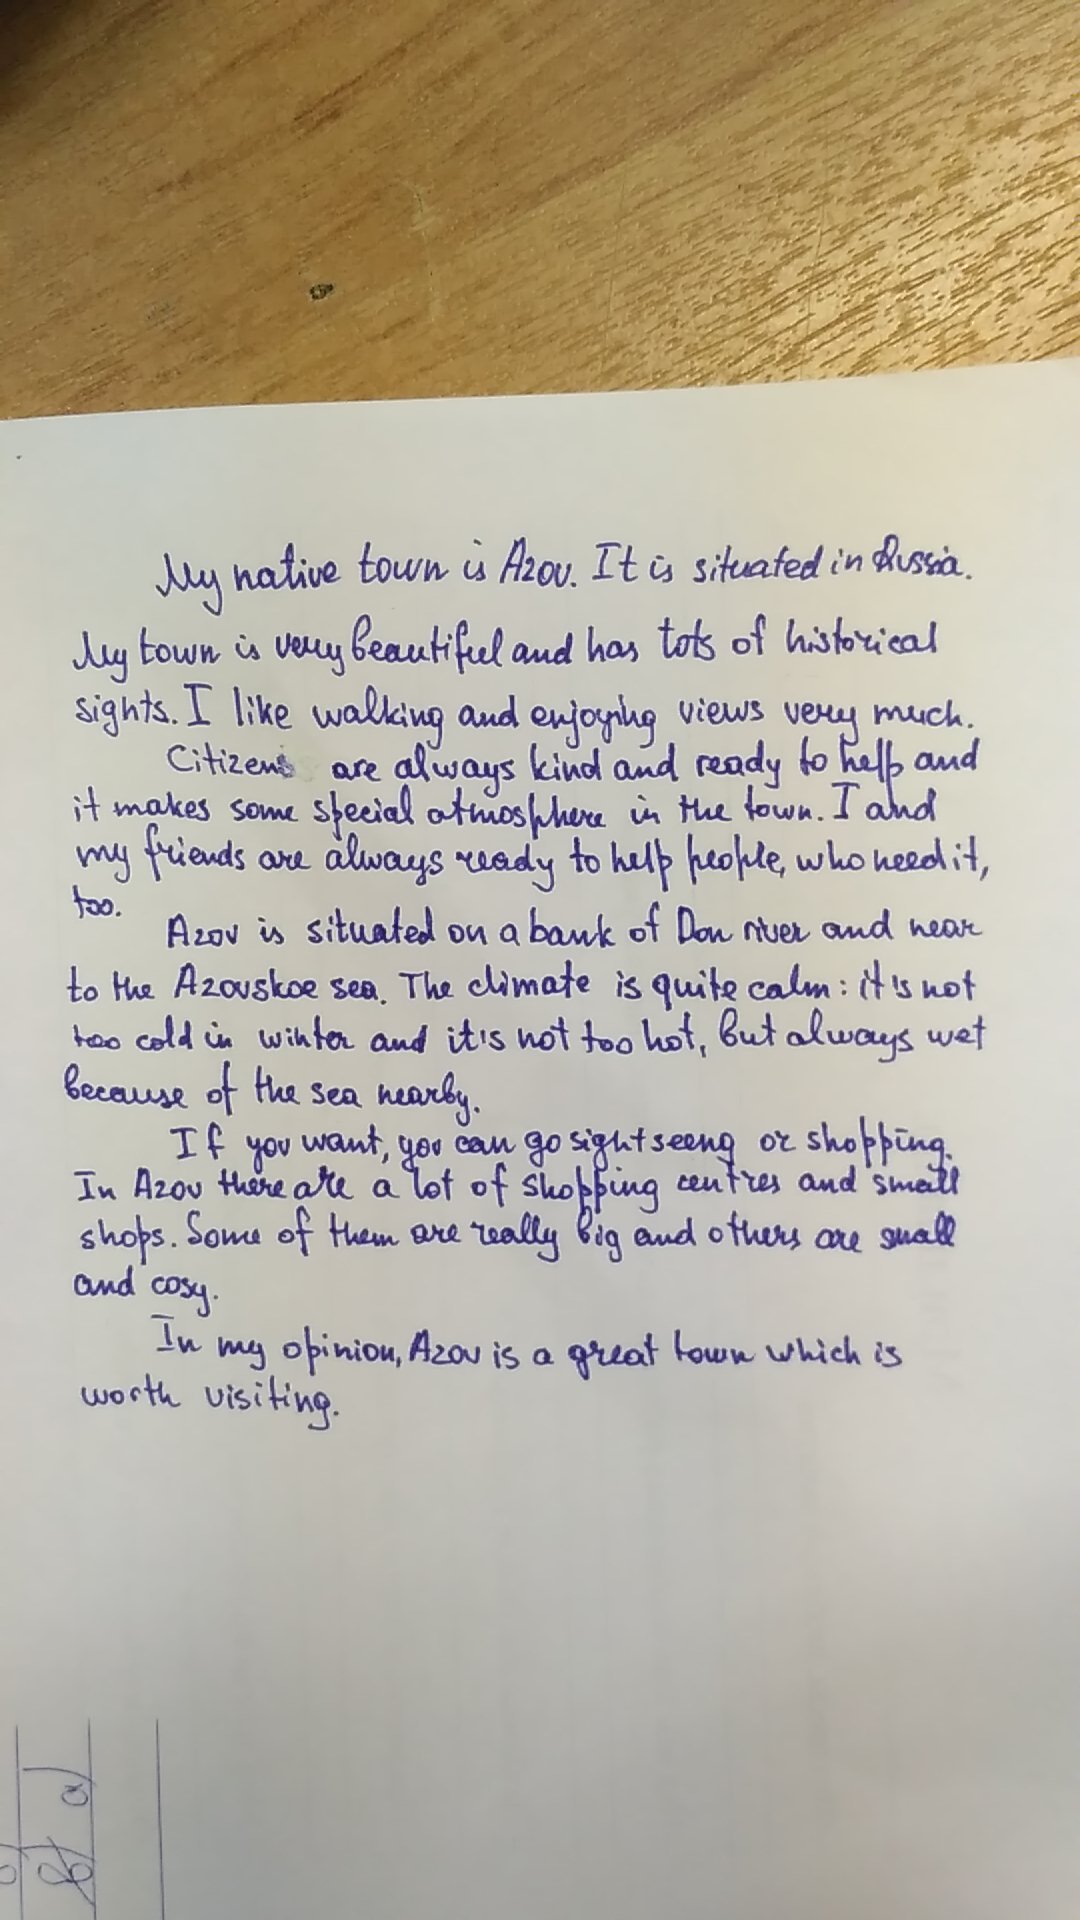 My native town is Azov. It is situated in Russia.
My town is very beautiful and has lots of historical
sights. I like walking and enjoying views very much.
Citizens are always kind and ready to help and
it makes some special atmosphere in the town. I and
my friends are always ready to help people, who need it,
too.
Azov is situated on a bank of Don river and near
to the Azovskoe sea. The climate is quite calm: it's not
too cold in winter and it's not too hot, but always wet
because of the sea nearby.
If you want, you can go sightseeng or shopping.
In Azov there are a lot of shopping centres and small
shops. Some of them are really big and others are small
and cosy.
In my opinion, Azov is a great town which is
worth visiting.